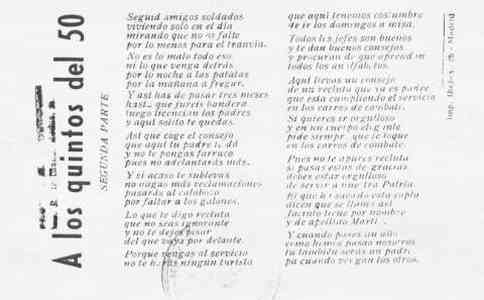 A los quintos del 50
SEGUNDA PARTE
Seguid amigos soldados
viviendo solo en el día
mirando que no os falte
por lo menos para el tranvía.
No es lo malo todo eso
ni lo que venga detrás
por la noche a las patatas
por la mañana a fregar.
Y así has de pasar tres meses
hasta que juréis bandera
luego licencian los padres
y aquí solito te quedas.
Así que coge el consejo
que aquí tu padre te dá
y no te pongas farruco
pues no adelantarás más.
Y si acaso te sublevas
no hagas más reclamaciones
pasarás al calabozo
por faltar a los galones.
Lo que te digo recluta
que no seas ignorante
y no te dejes pasar
del que vaya por delante.
Porque vengas al servicio
no te harás ningún turista
que aquí tenemos costumbre
de ir los domingos a misa.
Todos los jefes son buenos
y te dan buenos consejos
y procuran de que aprendan
todos los analfabetos.
Aquí llevas un consejo
de un recluta que ya es padre
que está cumpliendo el servicio
en los carros de combate.
Si quieres ir orgulloso
y en un cuerpo elegante
pide siempre que te toque
en los carros de combate.
Pues no te apures recluta
si pasas estas desgracias
debes estar orgulloso
de servir a nuestra Patria.
El que ha sacado esta copla
dicen que se llama así
Jacinto tiene por nombre
y de apellido Martí
Y cuando pases un año
como hemos pasado nosotros
tu también serás un padre
pa cuando vengan los otros.
Madrid